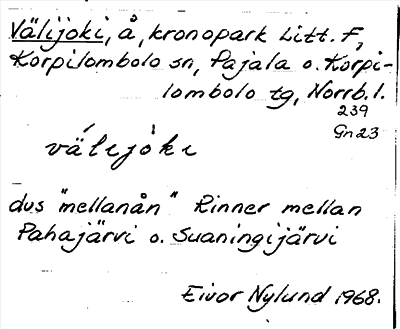 Välijoki, å, kronopark Litt. F,
Korpilombolo sn, Pajala o. Korpi-
lombolo tg, Norrb. l.
239
Gn 23
välijoki
dvs "mellanån" Rinner mellan
Pahajärvi o. Suaningijärvi
Eivor Nylund 1968.